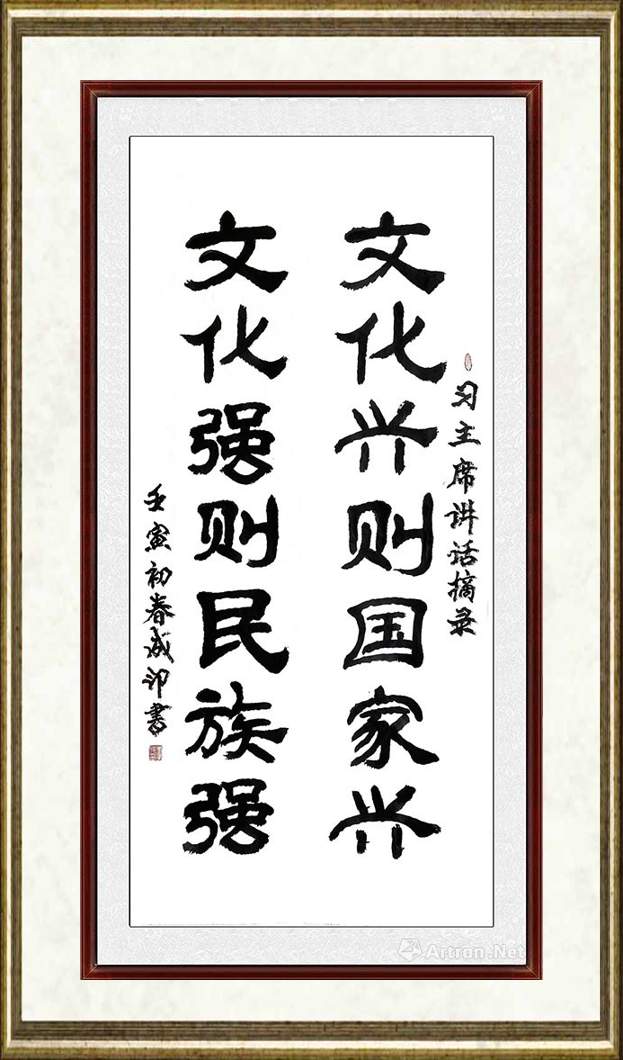 习主席讲话摘录
文化兴则国家兴
文化强则民族强
壬寅初春成印书
Artron.Net